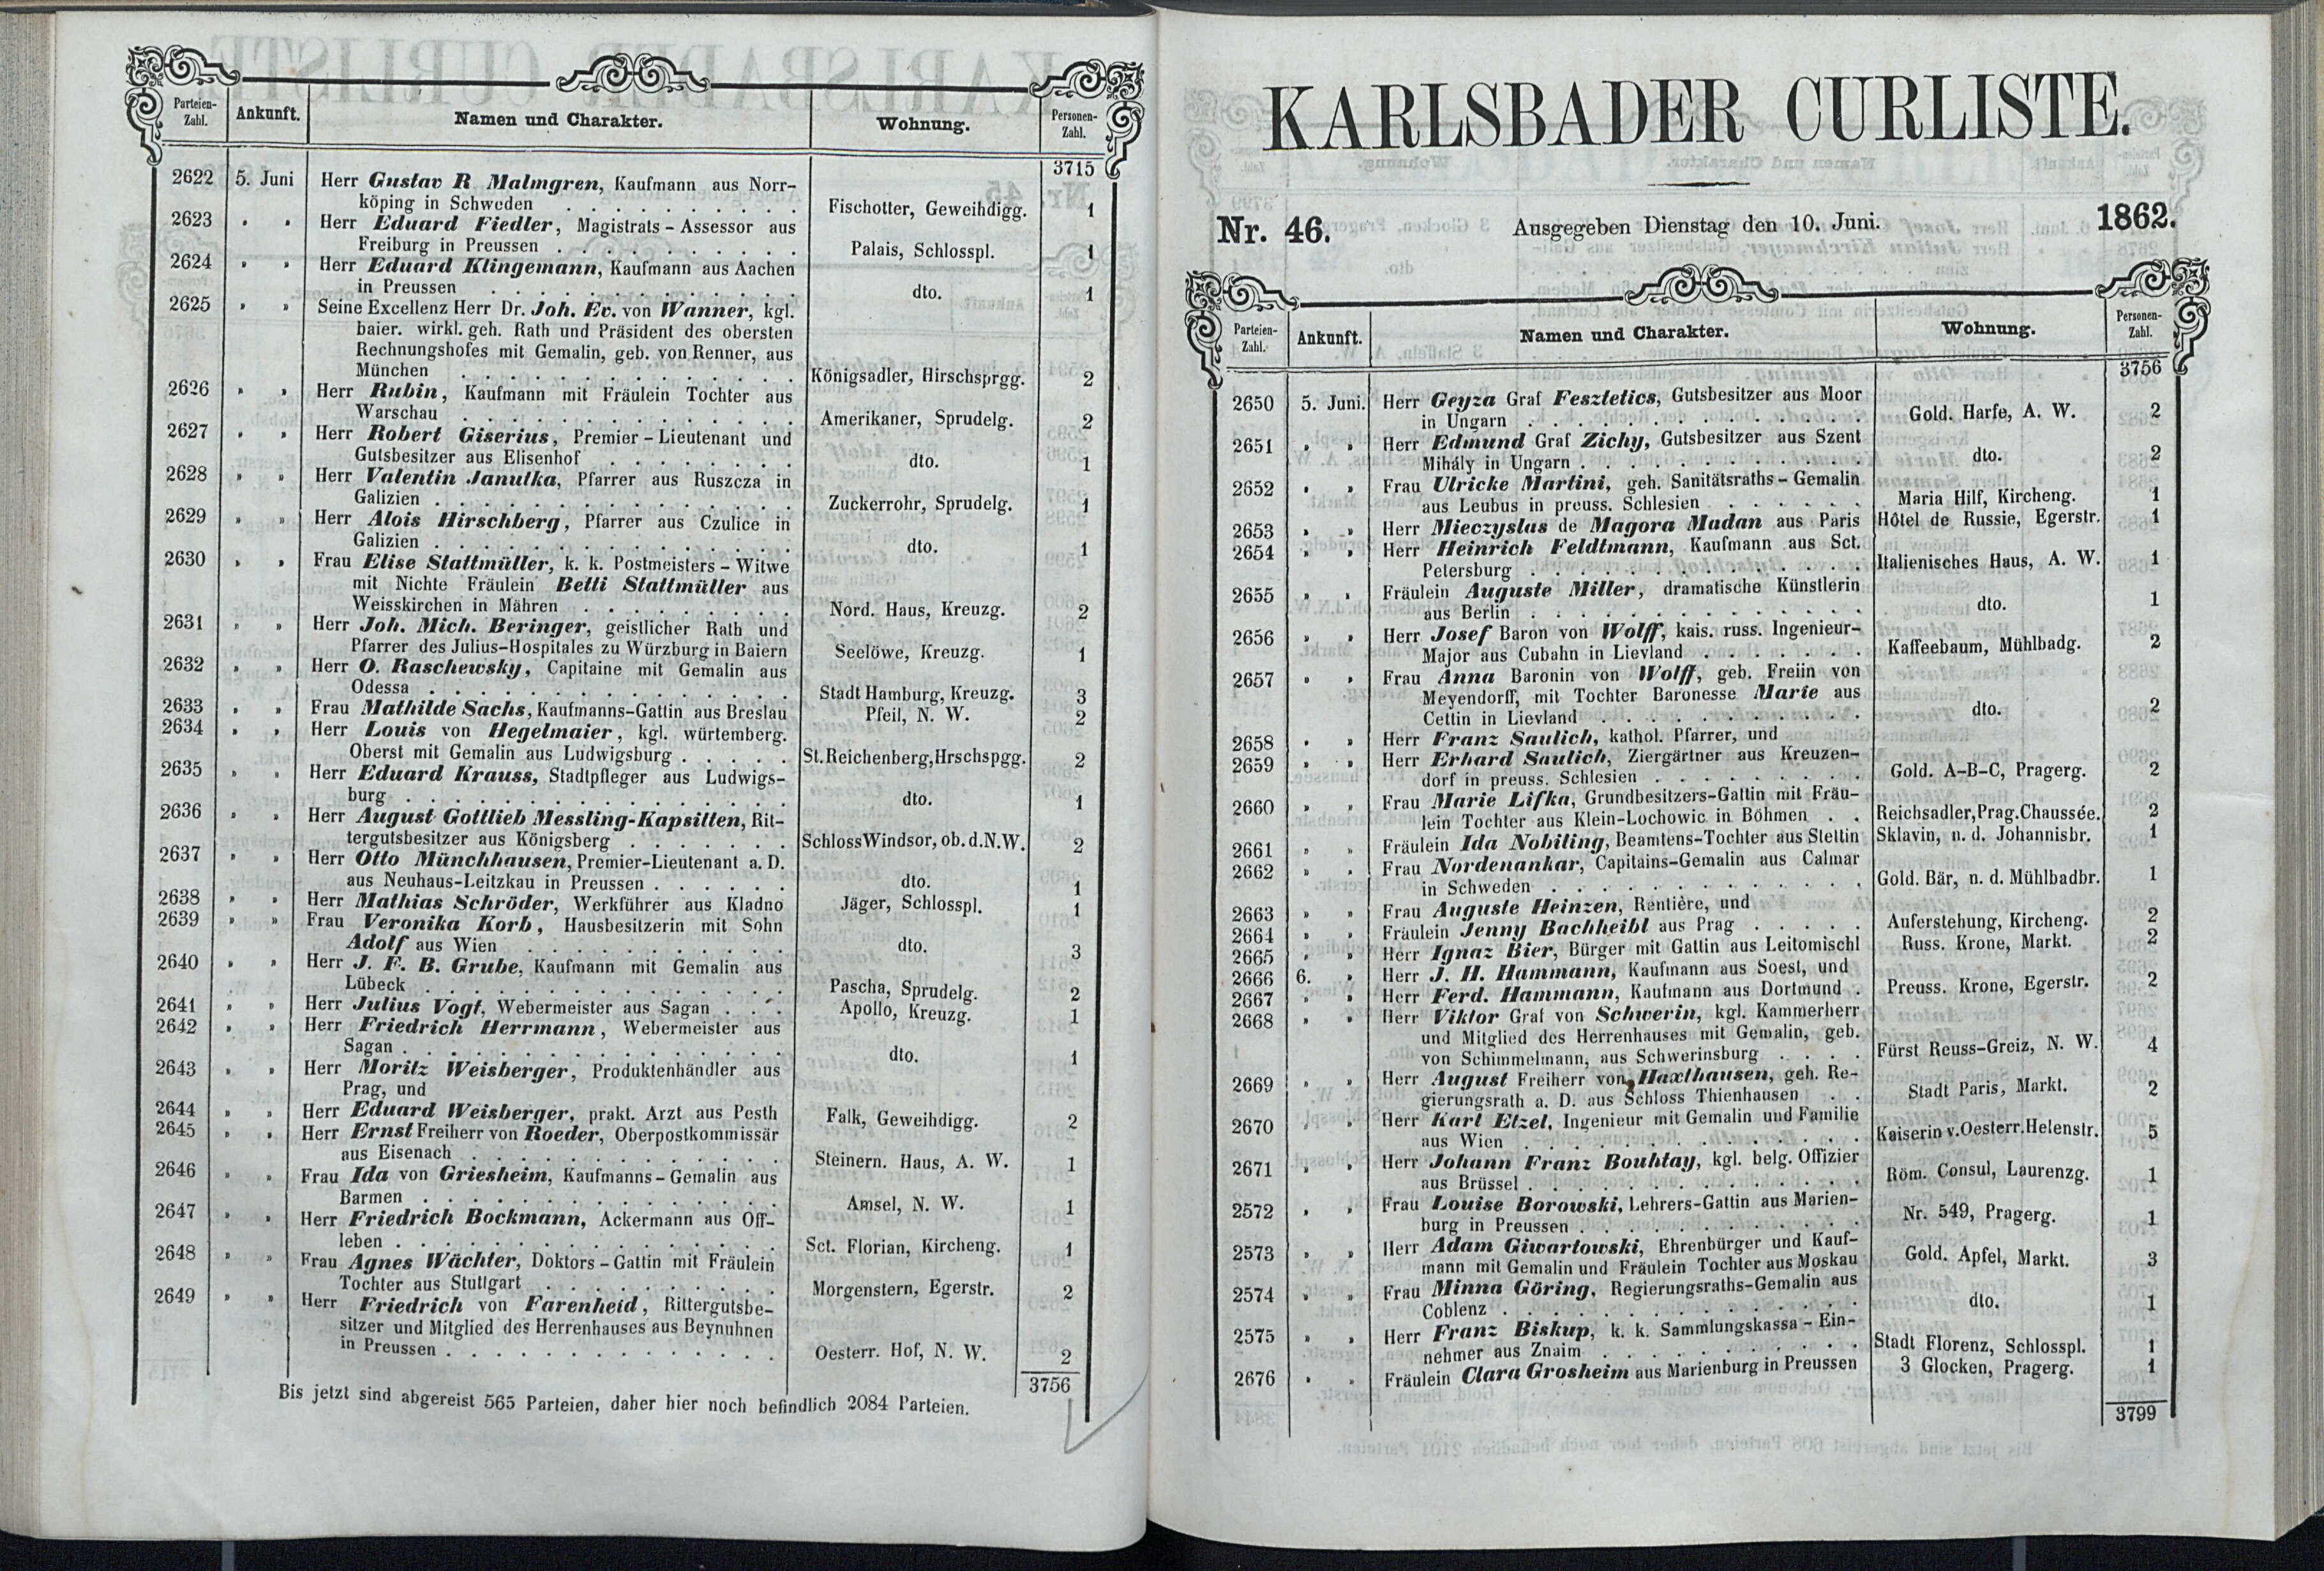 Parteien-Zahl. Ankunft. Namen und Charakter. Wohnung. Personen-Zahl.
3715
2622 5. Juni Herr Gustav R Malmgren, Kaufmann aus Norr-
köping in Schweden . . . . . . . . . . Fischotter, Geweihdigg. 1
2623 „ „ Herr Eduard Fiedler, Magistrats-Assessor aus
Freiburg in Preussen . . . . . . . . . . Palais, Schlosspl. 1
2624 „ „ Herr Eduard Klingemann, Kaufmann aus Aachen
in Preussen . . . . . . . . . . . . . dto. 1
2625 „ „ Seine Excellenz Herr Dr. Joh. Ev. von Wanner, kgl.
baier. wirkl. geh. Rath und Präsident des obersten
Rechnungshofes mit Gemalin, geb. von Renner, aus
München . . . . . . . . . . . . . . Königsadler, Hirschsprgg. 2
2626 „ „ Herr Rubin, Kaufmann mit Fräulein Tochter aus
Warschau . . . . . . . . . . . . . . Amerikaner, Sprudelg. 2
2627 „ „ Herr Robert Giserius, Premier-Lieutenant und
Gutsbesitzer aus Elisenhof . . . . . . . . dto. 1
2628 „ „ Herr Valentin Janutka, Pfarrer aus Ruszcza in
Galizien . . . . . . . . . . . . . . Zuckerrohr, Sprudelg. 1
2629 „ „ Herr Alois Hirschberg, Pfarrer aus Czulice in
Galizien . . . . . . . . . . . . . . dto. 1
2630 „ „ Frau Elise Stattmüller, k. k. Postmeisters-Witwe
mit Nichte Fräulein Betti Stattmüller aus
Weisskirchen in Mähren . . . . . . . . . Nord. Haus, Kreuzg. 2
2631 „ „ Herr Joh. Mich. Beringer, geistlicher Rath und
Pfarrer des Julius-Hospitales zu Würzburg in Baiern Seelöwe, Kreuzg. 1
2632 „ „ Herr O. Raschewsky, Capitaine mit Gemalin aus
Odessa . . . . . . . . . . . . . . . Stadt Hamburg, Kreuzg. 3
2633 „ „ Frau Mathilde Sachs, Kaufmanns-Gattin aus Breslau Pfeil, N. W. 2
2634 „ „ Herr Louis von Hegelmaier, kgl. würtemberg.
Oberst mit Gemalin aus Ludwigsburg . . . . . St. Reichenberg, Hrschspgg. 2
2635 „ „ Herr Eduard Krauss, Stadtpfleger aus Ludwigs-
burg . . . . . . . . . . . . . . . . dto. 1
2636 „ „ Herr August Gottlieb Messling-Kapsitten, Rit-
tergutsbesitzer aus Königsberg . . . . . . . Schloss Windsor, ob. d. N. W. 2
2637 „ „ Herr Otto Münchhausen, Premier-Lieutenant a. D.
aus Neuhaus-Leitzkau in Preussen . . . . . . dto. 1
2638 „ „ Herr Mathias Schröder, Werkführer aus Kladno Jäger, Schlosspl. 1
2639 „ „ Frau Veronika Korb, Hausbesitzerin mit Sohn
Adolf aus Wien . . . . . . . . . . . dto. 3
2640 „ „ Herr J. F. B. Grube, Kaufmann mit Gemalin aus
Lübeck . . . . . . . . . . . . . . . Pascha, Sprudelg. 2
2641 „ „ Herr Julius Vogt, Webermeister aus Sagan . . . Apollo, Kreuzg. 1
2642 „ „ Herr Friedrich Herrmann, Webermeister aus
Sagan . . . . . . . . . . . . . . . dto. 1
2643 „ „ Herr Moritz Weisberger, Produktenhändler aus
Prag, und
2644 „ „ Herr Eduard Weisberger, prakt. Arzt aus Pesth Falk, Geweihdigg. 2
2645 „ „ Herr Ernst Freiherr von Roeder, Oberpostkommissär
aus Eisenach . . . . . . . . . . . . . Steinern. Haus, A. W. 1
2646 „ „ Frau Ida von Griesheim, Kaufmanns-Gemalin aus
Barmen . . . . . . . . . . . . . . . Amsel, N. W. 1
2647 „ „ Herr Friedrich Bockmann, Ackermann aus Off-
leben . . . . . . . . . . . . . . . . Sct. Florian, Kircheng. 1
2648 „ „ Frau Agnes Wächter, Doktors-Gattin mit Fräulein
Tochter aus Stuttgart . . . . . . . . . . Morgenstern, Egerstr. 2
2649 „ „ Herr Friedrich von Farenheid, Rittergutsbe-
sitzer und Mitglied des Herrenhauses aus Beynuhnen
in Preussen . . . . . . . . . . . . . . Oesterr. Hof, N. W. 2
3756
Bis jetzt sind abgereist 565 Parteien, daher hier noch befindlich 2084 Parteien.
KARLSBADER CURLISTE.
Nr. 46. Ausgegeben Dienstag den 10. Juni. 1862.
Parteien-Zahl. Ankunft. Namen und Charakter. Wohnung. Personen-Zahl.
3756
2650 5. Juni. Herr Geyza Graf Fesztetics, Gutsbesitzer aus Moor
in Ungarn . . . . . . . . . . . . . . Gold. Harfe, A. W. 2
2651 „ „ Herr Edmund Graf Zichy, Gutsbesitzer aus Szent
Mihály in Ungarn . . . . . . . . . . . . dto. 2
2652 „ „ Frau Ulricke Martini, geh. Sanitätsraths-Gemalin
aus Leubus in preuss. Schlesien . . . . . . Maria Hilf, Kircheng. 1
2653 „ „ Herr Mieczyslas de Magora Madan aus Paris Hôtel de Russie, Egerstr. 1
2654 „ „ Herr Heinrich Feldtmann, Kaufmann aus Sct.
Petersburg . . . . . . . . . . . . . . Italienisches Haus, A. W. 1
2655 „ „ Fräulein Auguste Miller, dramatische Künstlerin
aus Berlin . . . . . . . . . . . . . . dto. 1
2656 „ „ Herr Josef Baron von Wolff, kais. russ. Ingenieur-
Major aus Cubahn in Lievland . . . . . . . Kaffeebaum, Mühlbadg. 2
2657 „ „ Frau Anna Baronin von Wolff, geb. Freiin von
Meyendorff, mit Tochter Baronesse Marie aus
Cettin in Lievland . . . . . . . . . . . dto. 2
2658 „ „ Herr Franz Saulich, kathol. Pfarrer, und
2659 „ „ Herr Erhard Saulich, Ziergärtner aus Kreuzen-
dorf in preuss. Schlesien . . . . . . . . . Gold. A-B-C, Pragerg. 2
2660 „ „ Frau Marie Lifka, Grundbesitzers-Gattin mit Fräu-
lein Tochter aus Klein-Lochowic in Böhmen . . Reichsadler, Prag. Chaussée. 2
2661 „ „ Fräulein Ida Nobiling, Beamtens-Tochter aus Stettin Sklavin, n. d. Johannisbr. 1
2662 „ „ Frau Nordenankar, Capitains-Gemalin aus Calmar
in Schweden . . . . . . . . . . . . . Gold. Bär, n. d. Mühlbadbr. 1
2663 „ „ Frau Auguste Heinzen, Rentière, und
2664 „ „ Fräulein Jenny Bachheibl aus Prag . . . . . Auferstehung, Kircheng. 2
2665 „ „ Herr Ignaz Bier, Bürger mit Gattin aus Leitomischl Russ. Krone, Markt. 2
2666 6. „ Herr J. H. Hammann, Kaufmann aus Soest, und
2667 „ „ Herr Ferd. Hammann, Kaufmann aus Dortmund . Preuss. Krone, Egerstr. 2
2668 „ „ Herr Viktor Graf von Schwerin, kgl. Kammerherr
und Mitglied des Herrenhauses mit Gemalin, geb.
von Schimmelmann, aus Schwerinsburg . . . . Fürst Reuss-Greiz, N. W. 4
2669 „ „ Herr August Freiherr von Haxthausen, geh. Re-
gierungsrath a. D. aus Schloss Thienhausen . . Stadt Paris, Markt. 2
2670 „ „ Herr Karl Etzel, Ingenieur mit Gemalin und Familie
aus Wien . . . . . . . . . . . . . . Kaiserin v. Oesterr. Helenstr. 5
2671 „ „ Herr Johann Franz Bouhtay, kgl. belg. Offizier
aus Brüssel . . . . . . . . . . . . . . Röm. Consul, Laurenzg. 1
2572 „ „ Frau Louise Borowski, Lehrers-Gattin aus Marien-
burg in Preussen . . . . . . . . . . . . Nr. 549, Pragerg. 1
2573 „ „ Herr Adam Giwartowski, Ehrenbürger und Kauf-
mann mit Gemalin und Fräulein Tochter aus Moskau Gold. Apfel, Markt. 3
2574 „ „ Frau Minna Göring, Regierungsraths-Gemalin aus
Coblenz . . . . . . . . . . . . . . . dto. 1
2575 „ „ Herr Franz Biskup, k. k. Sammlungskassa-Ein-
nehmer aus Znaim . . . . . . . . . . . Stadt Florenz, Schlosspl. 1
2676 „ „ Fräulein Clara Grosheim aus Marienburg in Preussen 3 Glocken, Pragerg. 1
3799